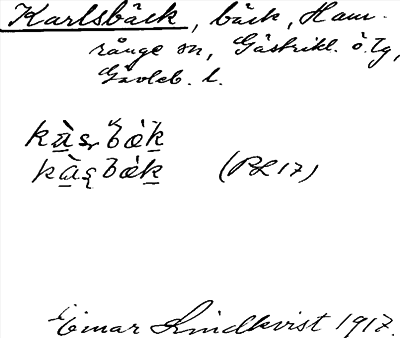 Karlsbäck, bäck, Ham-
rånge sn, Gästrikl. ö. tg,
Gävleb. l.
kàʂbæ̀k
kàʂbǽk (RL 17)
Einar Lindkvist 1917.